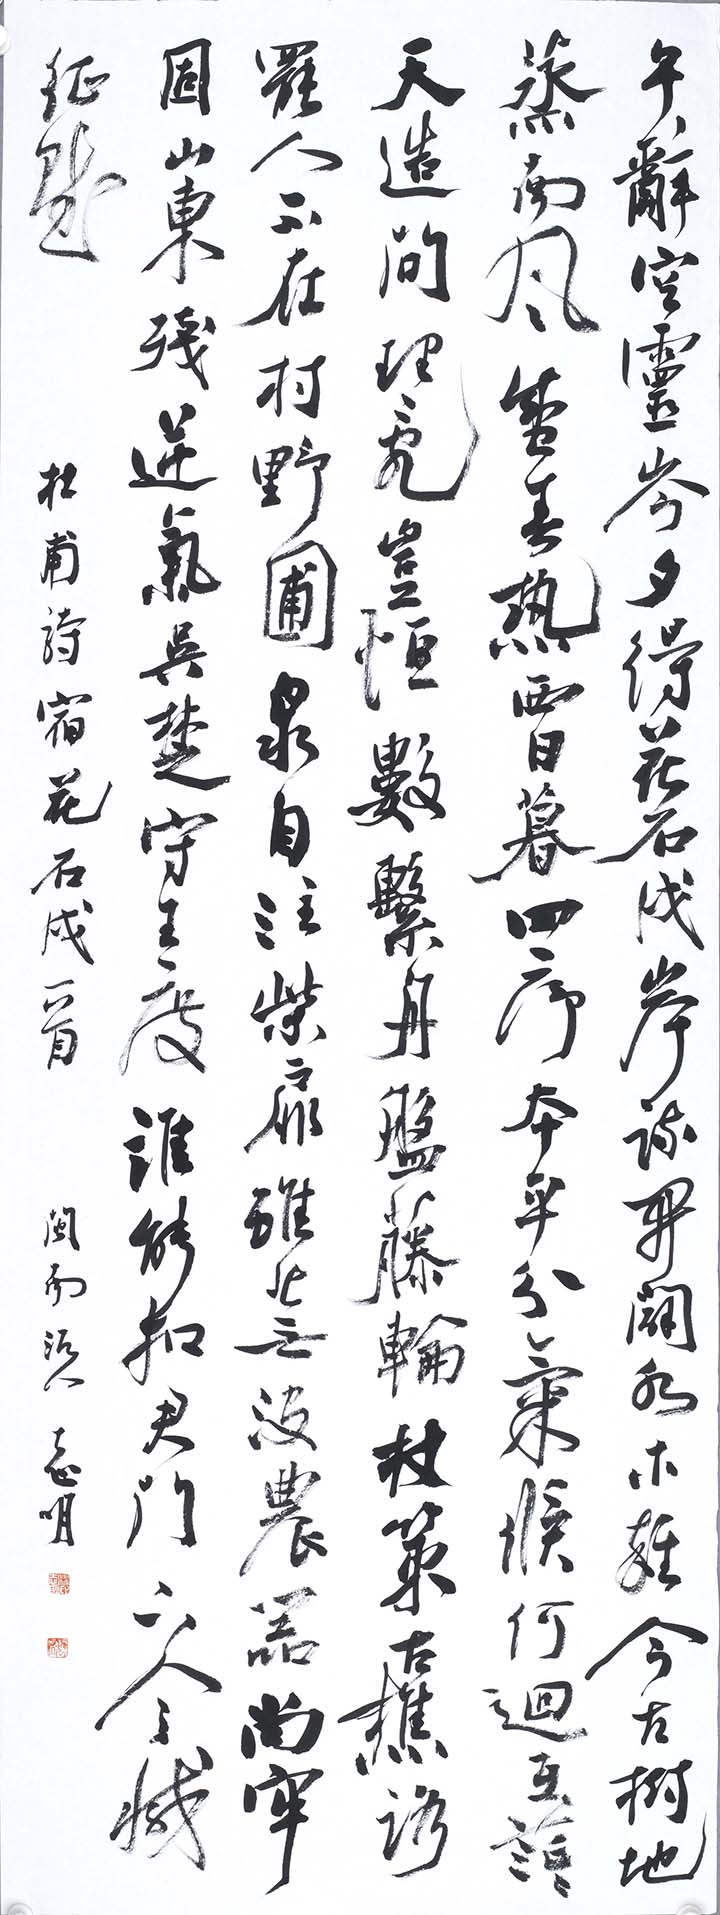 午辭空靈岑夕得花石戍岸疏開闢水木雜今古樹地
蒸南風盛春熱西日暮四序本平分氣候何迴互茫茫
天造間理亂豈恒數繫舟盤藤輪杖策古樵路
罷人不在村野圃泉自注柴扉雖蕪沒農器尚牢
固山東殘逆氣吳楚守王度誰能扣君門下令減
征賦
杜甫詩宿花石戍一首 閩南洪志明